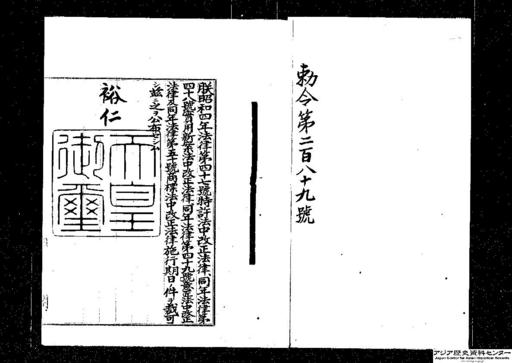 勅令第二百八十九號
朕昭和四年法律第四十七號特許法中改正法律、同年法律第
四十八號實用新案法中改正法律、同年法律第四十九號意匠法中改正
法律及同年法律第五十號商標法中改正法律施行期日ノ件ヲ裁可
シ茲ニ之ヲ公布セシム
裕仁
天皇
御璽
アジア歴史資料センター
Japan Center for Asian Historical Records